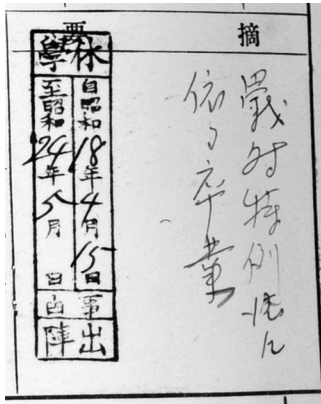 摘要
戰時特例法ニ
依リ卒業
休學
自昭和18年4月15日
至昭和24年5月 日
事由
出陣